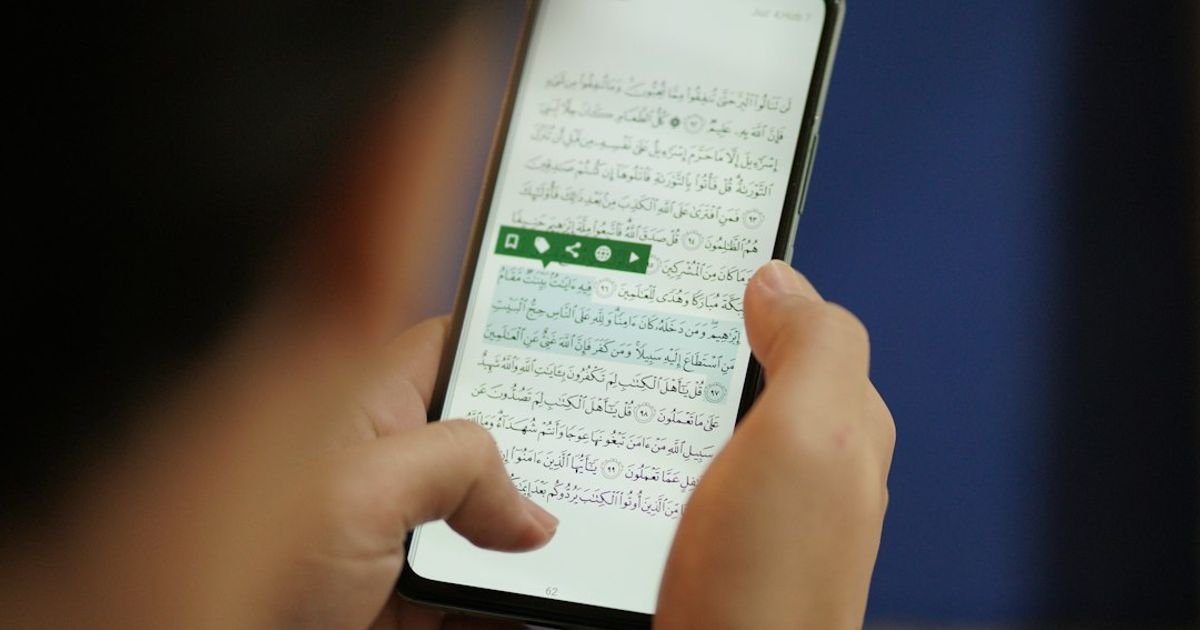 لَن تَنَالُوا۟ ٱلْبِرَّ حَتَّىٰ تُنفِقُوا۟ مِمَّا تُحِبُّونَ ۚ وَمَا تُنفِقُوا۟ مِن شَىْءٍ
فَإِنَّ ٱللَّهَ بِهِۦ عَلِيمٌ ٩٢ ۞ كُلُّ ٱلطَّعَامِ كَانَ حِلًّا لِّبَنِىٓ
إِسْرَٰٓءِيلَ إِلَّا مَا حَرَّمَ إِسْرَٰٓءِيلُ عَلَىٰ نَفْسِهِۦ مِن قَبْلِ أَن تُنَزَّلَ
ٱلتَّوْرَىٰةُ ۗ قُلْ فَأْتُوا۟ بِٱلتَّوْرَىٰةِ فَٱتْلُوهَآ إِن كُنتُمْ صَٰدِقِينَ
٩٣ فَمَنِ ٱفْتَرَىٰ عَلَى ٱللَّهِ ٱلْكَذِبَ مِنۢ بَعْدِ ذَٰلِكَ فَأُو۟لَٰٓئِكَ
هُمُ ٱلظَّٰلِمُونَ ٩٤ قُلْ صَدَقَ ٱللَّهُ ۗ فَٱتَّبِعُوا۟ مِلَّةَ إِبْرَٰهِيمَ حَنِيفًا
وَمَا كَانَ مِنَ ٱلْمُشْرِكِينَ
بِبَكَّةَ مُبَارَكًا وَهُدًى لِّلْعَٰلَمِينَ ٩٦ فِيهِ ءَايَٰتٌۢ بَيِّنَٰتٌ مَّقَامُ
إِبْرَٰهِيمَ ۖ وَمَن دَخَلَهُۥ كَانَ ءَامِنًا ۗ وَلِلَّهِ عَلَى ٱلنَّاسِ حِجُّ ٱلْبَيْتِ
مَنِ ٱسْتَطَاعَ إِلَيْهِ سَبِيلًا ۚ وَمَن كَفَرَ فَإِنَّ ٱللَّهَ غَنِىٌّ عَنِ ٱلْعَٰلَمِينَ
٩٧ قُلْ يَٰٓأَهْلَ ٱلْكِتَٰبِ لِمَ تَكْفُرُونَ بِـَٔايَٰتِ ٱللَّهِ وَٱللَّهُ شَهِيدٌ
عَلَىٰ مَا تَعْمَلُونَ ٩٨ قُلْ يَٰٓأَهْلَ ٱلْكِتَٰبِ لِمَ تَصُدُّونَ عَن
سَبِيلِ ٱللَّهِ مَنْ ءَامَنَ تَبْغُونَهَا عِوَجًا وَأَنتُمْ شُهَدَآءُ ۗ وَمَا ٱللَّهُ
عَمَّا تَعْمَلُونَ ٩٩ يَٰٓأَيُّهَا ٱلَّذِينَ ءَامَنُوٓا۟ إِن
مِّنَ ٱلَّذِينَ أُوتُوا۟ ٱلْكِتَٰبَ يَرُدُّوكُم بَعْدَ
62